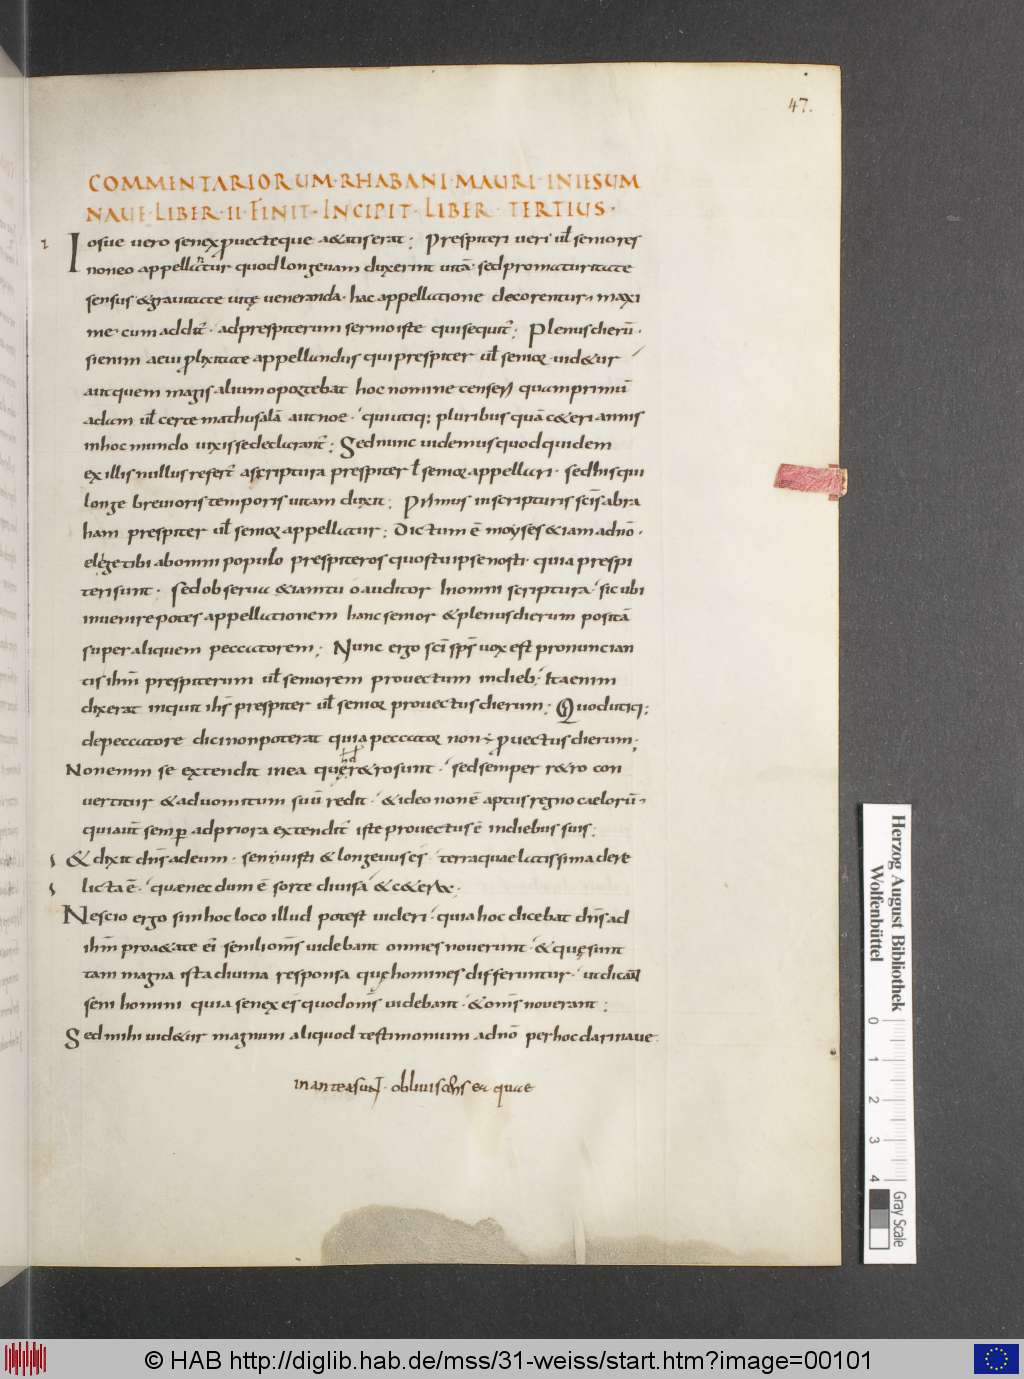 47.
COMMENTARIORUM·RHABANI·MAURI·INIESUM
NAUE·LIBER·II·FINIT·INCIPIT·LIBER·TERTIUS·
Iosue vero senex puecteque aetatis erat; Prespiteri veri ul seniores
noneo appellantur quod longeuam duxerint uitā· sed pro maturitate
sensus & grauitate uitę ueneranda· hac appellatione decorentur maxi
me· cum addit̄· ad prespiterum sermo iste qui sequit̄; Plenus dierū·
si enim aeui plixitate appellandus qui prespiter ul senior· uidetur
aut quem magis alium oportebat hoc nomine censeri quam primū
adam ul certe mathusalā aut noe· qui utiq; pluribus quā ceteri annis
in hoc mundo uixisse declarant̄; Sed nunc uidemus quod quidem
ex illis nullus refert̄ a scriptura prespiter l senior appellari· sed his qui
longe breuioris temporis uitam duxit; Primus in scripturis scīs abra
ham prespiter ul senior appellatur; Dictum ē moyses & iam a dnō·
elege tibi ab omni populo prespiteros quos tu ipse nosti· quia prespi
teri sunt· sed obserua etiam tu o auditor In omni scriptura· sicubi
inuenire potes appellationem hanc senior & plenus dierum positā
super aliquem peccatorem; Nunc ergo scī sp̄s uox est pronuncian
tis ihm̄ prespiterum ul seniorem prouectum in dieb; Ita enim
dixerat inquit ihs̄ prespiter ul senior prouectus dierum; Quod utiq;
de peccatore dici non poterat quia peccator non ÷ puectus dierum;
Non enim se extendit in ea quę retro sunt· sed semper retro con
uertitur & ad uomitum suū redit· & ideo non ē aptus regno caelorū
qui aūt semp ad priora extendit̄ iste prouectus ē in diebus suis;
& dixit dn̄s ad eum· senuisti & longeuus es· terraquae latissima dere
licta ē· quae nec dum ē sorte diuisa & cetera·
Nescio ergo si in hoc loco illud potest uideri· quia hoc dicebat dn̄s ad
ihm̄ pro aetate ei senili om̄s uidebant omnes nouerunt· & quę sunt
tam magna ista diuina responsa quę homines differuntur· ut dicant
seni homini quia senex es quod om̄s uidebant· & om̄s nouerant;
Sed mihi uidetur magnum aliquod testimonium a dnō per hoc dari naue·
in ante a sunt· obliuiscens ea quae
Herzog August Bibliothek
Wolfenbüttel
0 1 2 3 4
Gray Scale
© HAB http://diglib.hab.de/mss/31-weiss/start.htm?image=00101